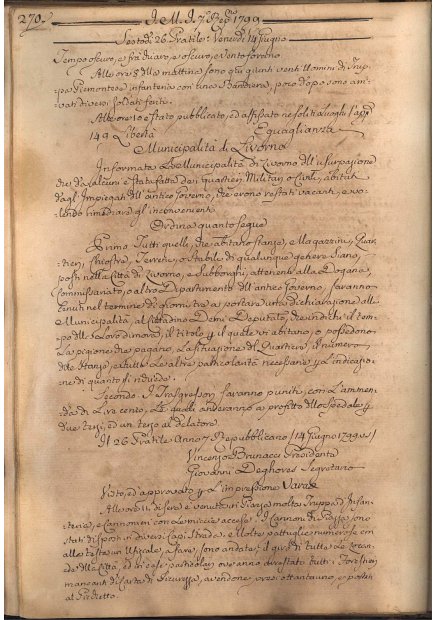 270.
I. M. I. 7. Rep. 1799
Sesto dì 26. Pratile: Venerdì 14 Giugno
Tempo oscuro, e frà chiaro, e oscuro, e Vento foreno
Alle ore 8 della mattina sono qui giunti venti Uomini di Trup-
pa Piemontese d'infanteria con una Bandiera, poco dopo sono arri-
vati diversi soldati feriti.
Alle ore 10 è stato pubblicato, ed affissato ne soliti Luoghi l'app.
149 Libertà Eguaglianza
Municipalità di Livorno
Informata La Municipalità di Livorno dell'usurpazione
che da alcuni è stata fatta dei quartieri Militari o Civili, abitati
dagl'Impiegati dell'antico Governo, che erono restati vacanti, e vo-
lendo rimediare agl'inconvenienti
Ordina quanto segue
Primo Tutti quelli, che abitano stanze, e Magazzini, Quar-
tieri, Chiostre, Terreni, o Stabili di qualunque genere siano,
posti nella Città di Livorno, e Subborghi, attenenti alla Dogana,
Commissariato, o altro Dipartimento dell'antico Governo, saranno
tenuti nel termine di giorni tre a portare una dichiarazione alla
Municipalità, al Cittadino Demi Deputato, che indichi il tem-
po della Loro dimora, il titolo p il quale vi abitano, o possedono
La pigione che pagano, La situazione del Quartiere, Il numero
delle stanze, e tutte Le altre particolarità necessarie p L'indicazio-
ne di quanto si richiede.
Secondo I Trasgressori saranno puniti, con L'ammen-
da di Lire cento, Le quali anderanno a profitto dello Spedale p
due terzi, ed un terzo al delatore.
Il 26 Pratile Anno 7 Repubblicano /14 Giugno 1799 vs/
Vincenzo Brunacci Presidente
Giovanni Deghores Segretario
Visto, ed approvato p L'impressione Varae
Alle ore 11 di sera è venuta in Piazza molta Truppa d'Infan-
teria, e Cannonieri con Le miccie accese: I Cannoni di Piazza sono
stati disposti in diversi Capi strada, e Molte pattuglie numerose con
alla testa un Ufiziale, a fare, sono andate, il giro di tutte Le strade
della Città, ed in case particolari ove anno arrestati tutti i Forestieri
mancanti di Carta di Sicurezza, avendone presi ottantauno, e portati
al Pretorio.